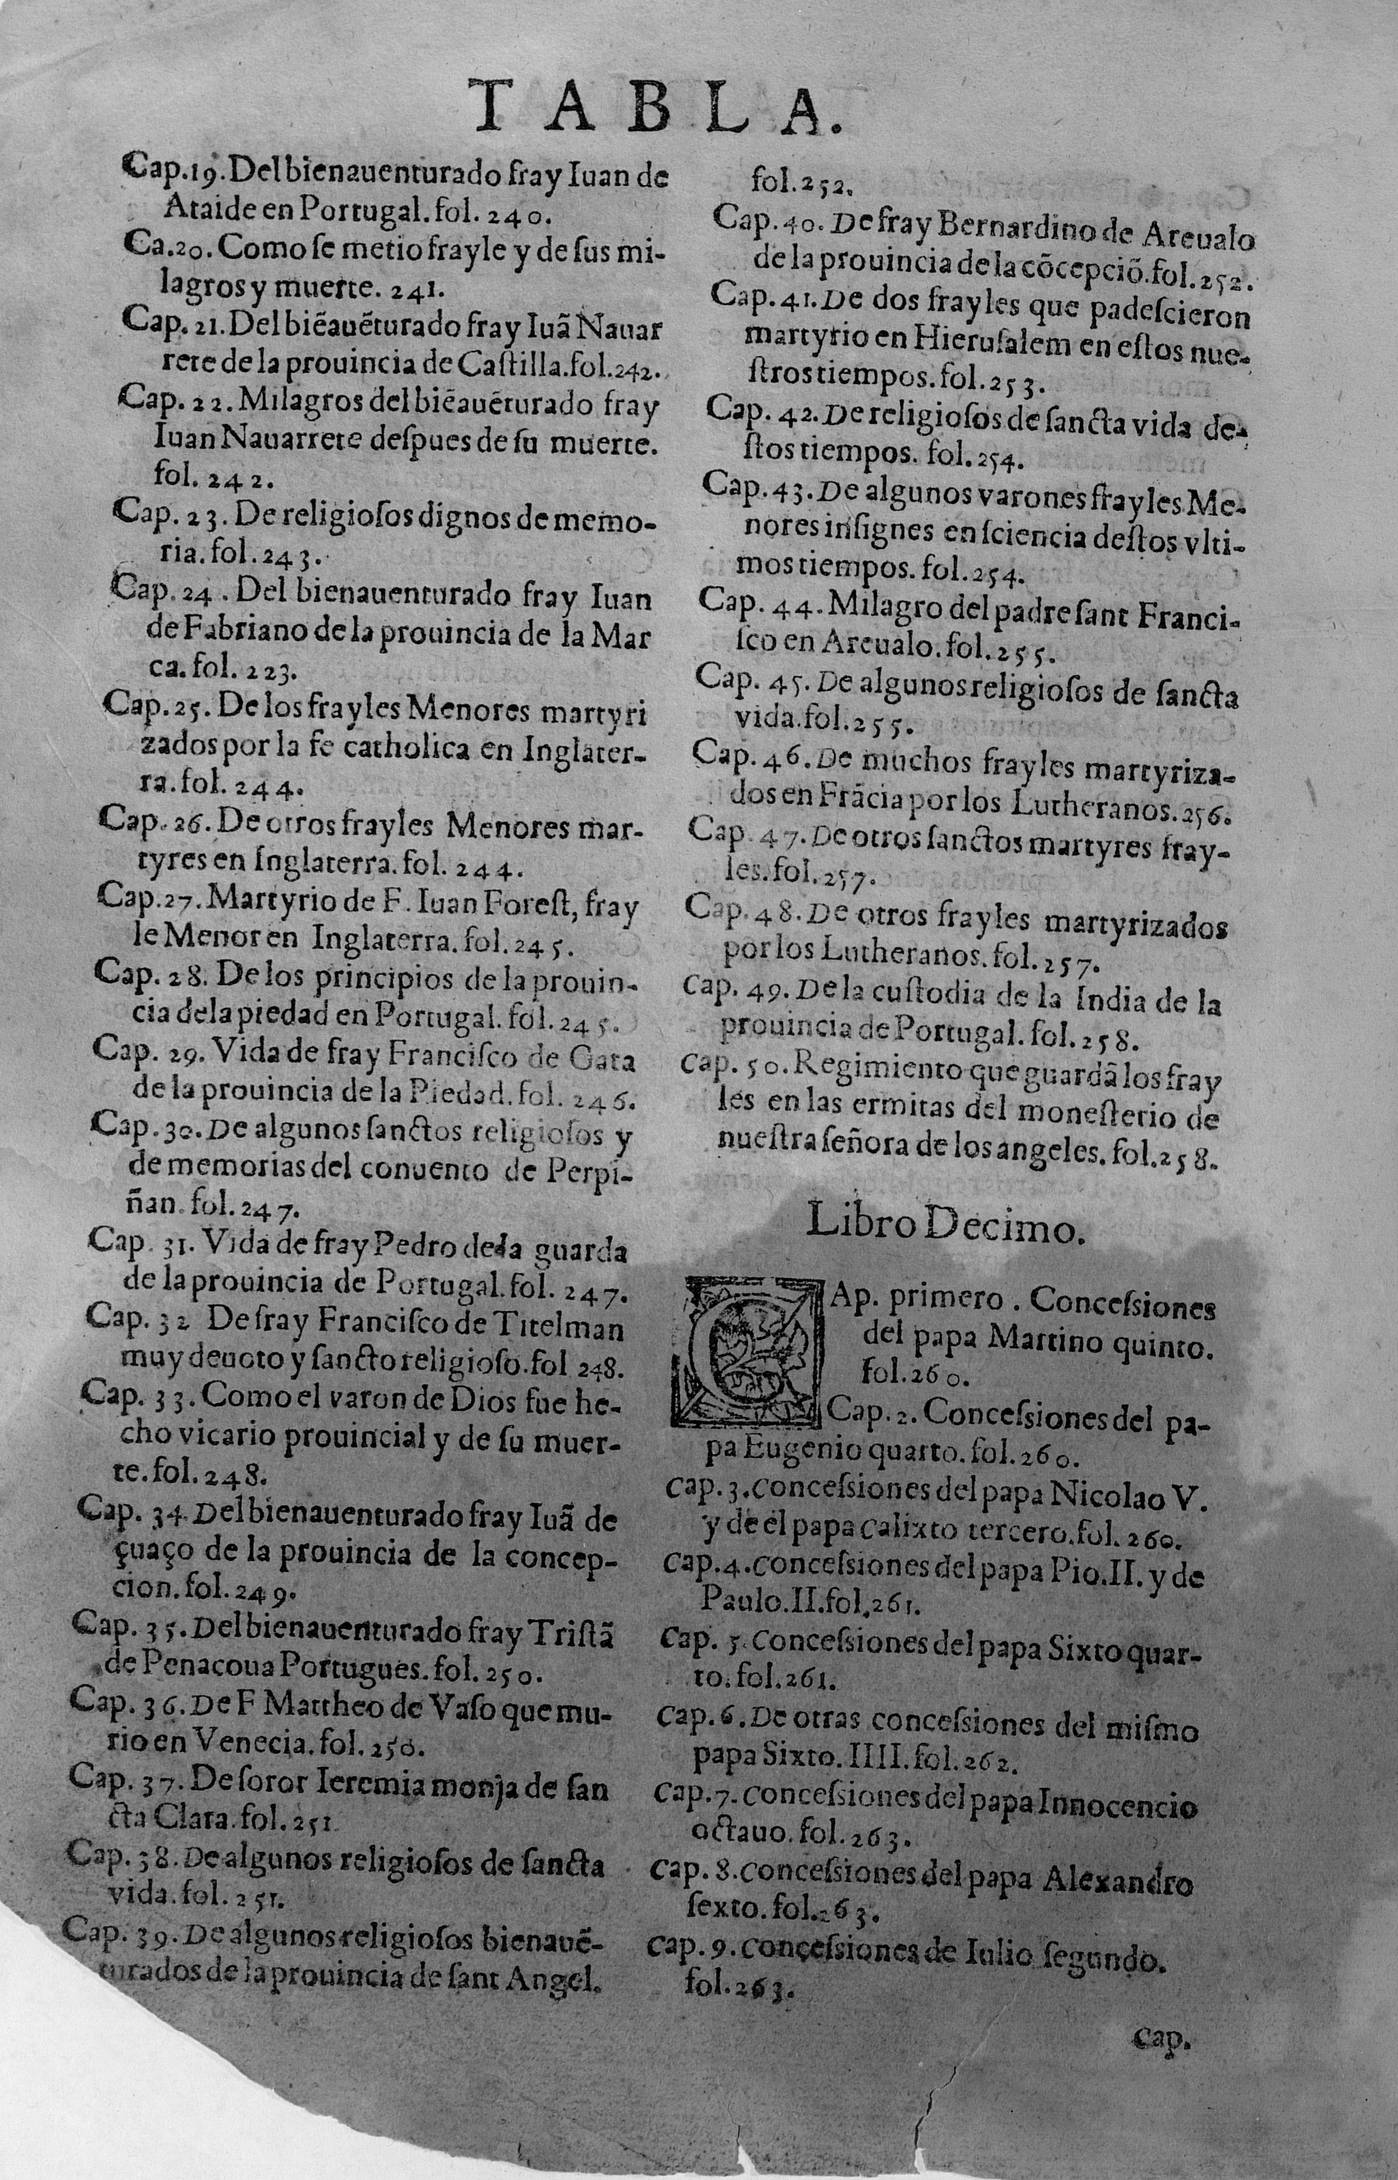 TABLA.
Cap.19.Del bienauenturado fray Iuan de
Ataide en Portugal.fol. 240.
Ca.20. Como ſe metio frayle y de ſus mi-
lagros y muerte. 241.
Cap. 21.Del biẽauẽturado fray Iuã Nauar
rete de la prouincia de Caſtilla.fol.242.
Cap. 22. Milagros del biẽauẽturado fray
Iuan Nauarrete deſpues de ſu muerte.
fol. 242.
Cap. 23. De religioſos dignos de memo-
ria.fol.243.
Cap. 24. Del bienauenturado fray Iuan
de Fabriano de la prouincia de la Mar
ca.fol. 223.
Cap.25. De los frayles Menores martyri
zados por la fe catholica en Inglater-
ra.fol. 244.
Cap.26. De otros frayles Menores mar-
tyres en Inglaterra.fol. 244.
Cap.27. Martyrio de F. Iuan Foreſt, fray
le Menor en Inglaterra.fol.245.
Cap. 28. De los principios de la prouin-
cia dela piedad en Portugal.fol.245.
Cap. 29. Vida de fray Franciſco de Gata
de la prouincia de la Piedad.fol. 246.
Cap.30.De algunos ſanctos religioſos y
de memorias del conuento de Perpi-
ñan.fol.247.
Cap. 31. Vida de fray Pedro de la guarda
de la prouincia de Portugal.fol. 247.
Cap. 32 De fray Franciſco de Titelman
muy deuoto y ſancto religioſo.fol 248.
Cap. 33. Como el varon de Dios fue he-
cho vicario prouincial y de ſu muer-
te.fol.248.
Cap. 34 Del bienauenturado fray Iuã de
çuaço de la prouincia de la concep-
cion.fol.249.
Cap. 35.Del bienauenturado fray Triſtã
de Penacoua Portugues.fol.250.
Cap. 36.De F Mattheo de Vaſo que mu-
rio en Venecia.fol.250.
Cap. 37. De ſoror Ieremia monja de ſan
cta Clara.fol.251
Cap. 38.De algunos religioſos de ſancta
vida.fol.251.
Cap. 39.De algunos religioſos bienauẽ-
turados de la prouincia de ſant Angel.
fol.252.
Cap.40. De fray Bernardino de Areualo
de la prouincia de la cõcepciõ.fol.252.
Cap.41.De dos frayles que padeſcieron
martyrio en Hieruſalem en eſtos nue-
ſtros tiempos.fol.253.
Cap. 42.De religioſos de ſancta vida de-
ſtos tiempos. fol.254.
Cap.43.De algunos varones frayles Me-
nores inſignes en ſciencia deſtos vlti-
mos tiempos.fol.254.
Cap. 44.Milagro del padre ſant Franci-
ſco en Areualo.fol.255.
Cap. 45.De algunos religioſos de ſancta
vida.fol.255.
Cap.46.De muchos frayles martyriza-
dos en Frãcia por los Lutheranos.256.
Cap.47.De otros ſanctos martyres fray-
les.fol.257.
Cap.48.De otros frayles martyrizados
por los Lutheranos.fol.257.
Cap.49.De la cuſtodia de la India de la
prouincia de Portugal.fol.258.
Cap.50.Regimiento que guardã los fray
les en las ermitas del moneſterio de
nueſtra ſeñora de los angeles.fol.258.
Libro Decimo.
CAp. primero . Conceſsiones
del papa Martino quinto.
fol.260.
Cap.2.Conceſsiones del pa-
pa Eugenio quarto.fol.260.
Cap.3.Conceſsiones del papa Nicolao V.
y de el papa Calixto tercero.fol.260.
Cap.4.Conceſsiones del papa Pio.II.y de
Paulo.II.fol.261.
Cap. 5.Conceſsiones del papa Sixto quar-
to.fol.261.
Cap.6.De otras conceſsiones del miſmo
papa Sixto.IIII.fol.262.
Cap.7.Conceſsiones del papa Innocencio
octauo.fol.263.
Cap.8.Conceſsiones del papa Alexandro
ſexto.fol.263.
Cap.9.Conceſsiones de Iulio ſegundo.
fol.263.
Cap.